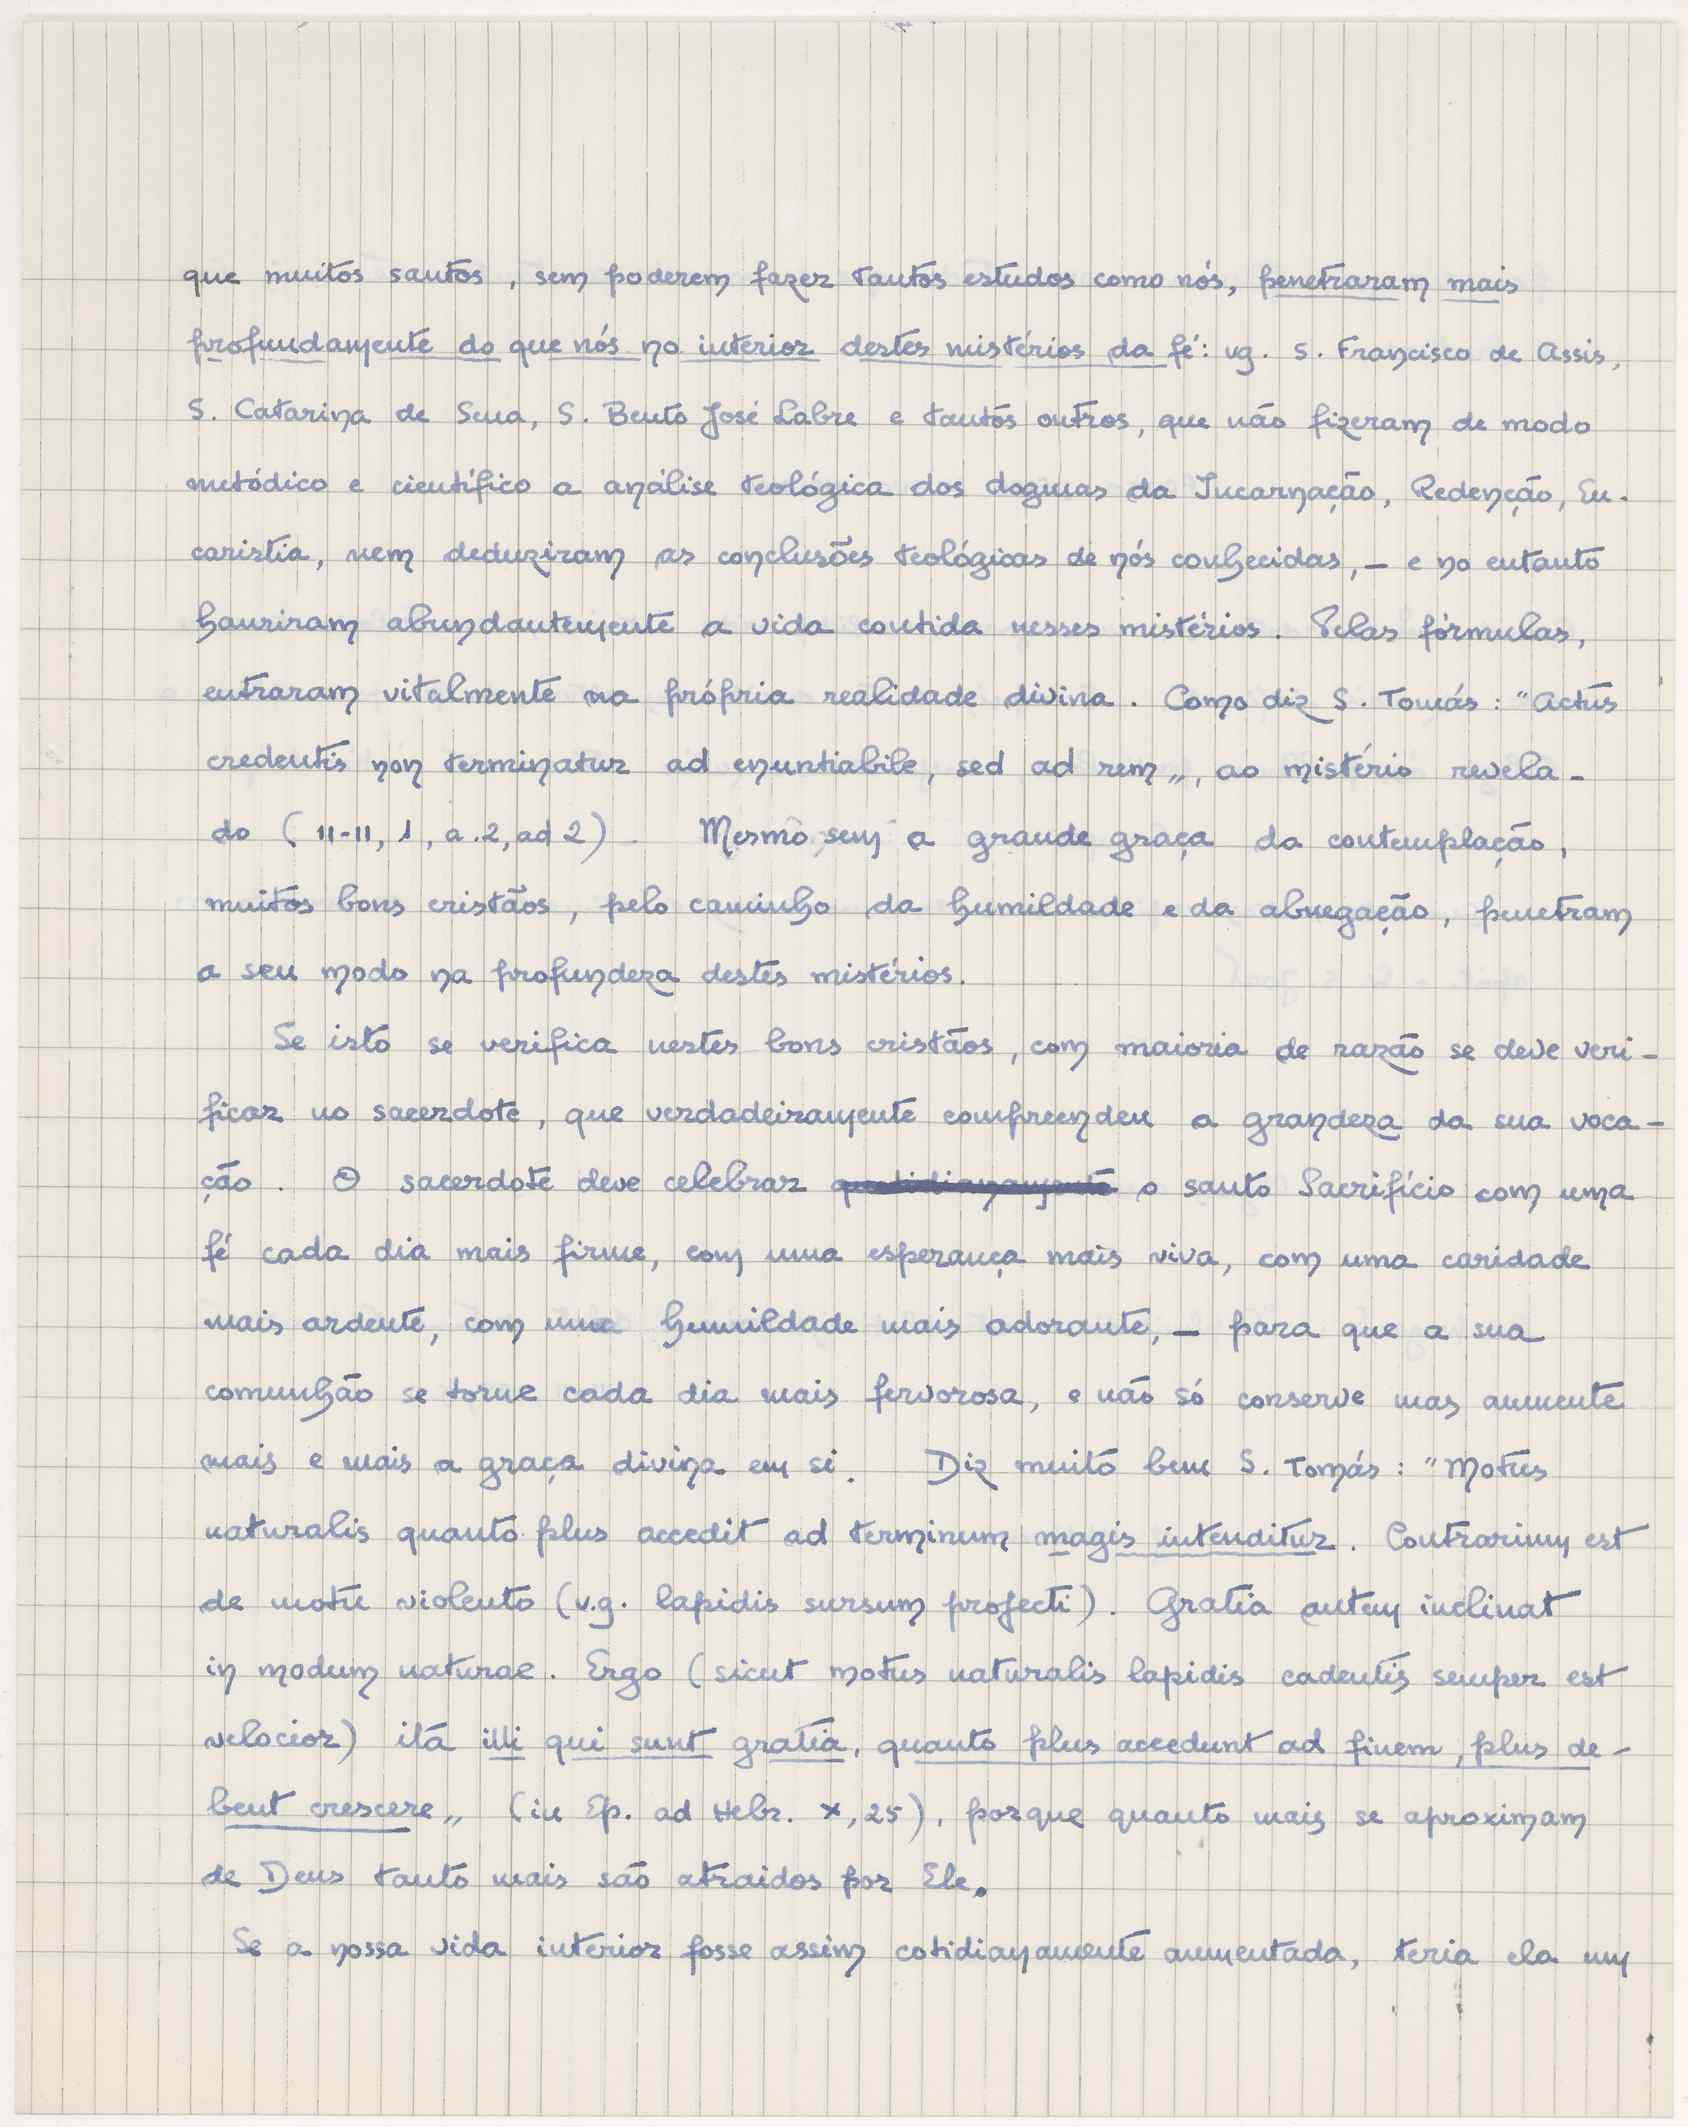 que muitos santos, sem poderem fazer tantos estudos como nós, penetraram mais
profundamente do que nós no interior destes mistérios da fé: vg. S. Francisco de Assis,
S. Catarina de Sena, S. Bento José Labre e tantos outros, que não fizeram de modo
metódico e científico a análise teológica dos dogmas da Incarnação, Redenção, Eu-
caristia, nem deduziram as conclusões teológicas de nós conhecidas, — e no entanto
hauriram abundantemente a vida contida nesses mistérios. Pelas fórmulas,
entraram vitalmente na própria realidade divina. Como diz S. Tomás: "Actus
credentis non terminatur ad enuntiabile, sed ad rem„, ao mistério revela-
do (II-II, 1, a.2, ad 2). Mesmo sem a grande graça da contemplação,
muitos bons cristãos, pelo caminho da humildade e da abnegação, penetram
a seu modo na profundeza destes mistérios.
Se isto se verifica nestes bons cristãos, com maioria de razão se deve veri-
ficar no sacerdote, que verdadeiramente compreendeu a grandeza da sua voca-
ção. O sacerdote deve celebrar quotidianamente o santo Sacrifício com uma
fé cada dia mais firme, com uma esperança mais viva, com uma caridade
mais ardente, com uma humildade mais adorante, — para que a sua
comunhão se torne cada dia mais fervorosa, e não só conserve mas aumente
mais e mais a graça divina em si. Diz muito bem S. Tomás: "Motus
naturalis quanto plus accedit ad terminum magis intenditur. Contrarium est
de motu violento (v.g. lapidis sursum projecti). Gratia autem inclinat
in modum naturae. Ergo (sicut motus naturalis lapidis cadentis semper est
velocior) ità illi qui sunt gratia, quanto plus accedunt ad finem, plus de-
bent crescere„ (in Ep. ad Hebr. X, 25), porque quanto mais se aproximam
de Deus tanto mais são atraidos por Ele.
Se a nossa vida interior fosse assim cotidianamente aumentada, teria ela um